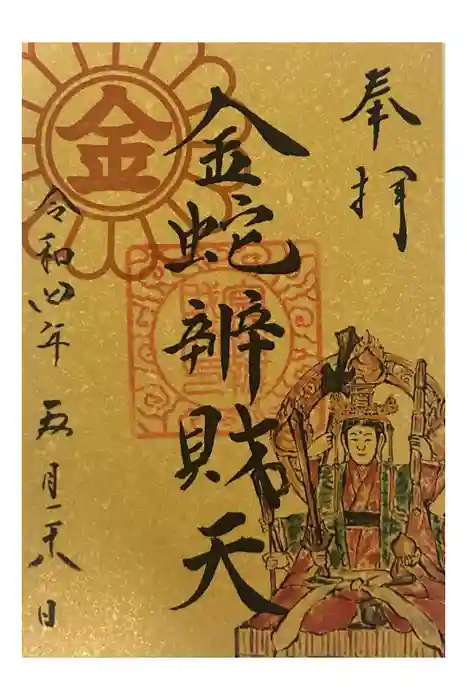 奉拝
金蛇辨財天
令和四年五月一八日
金